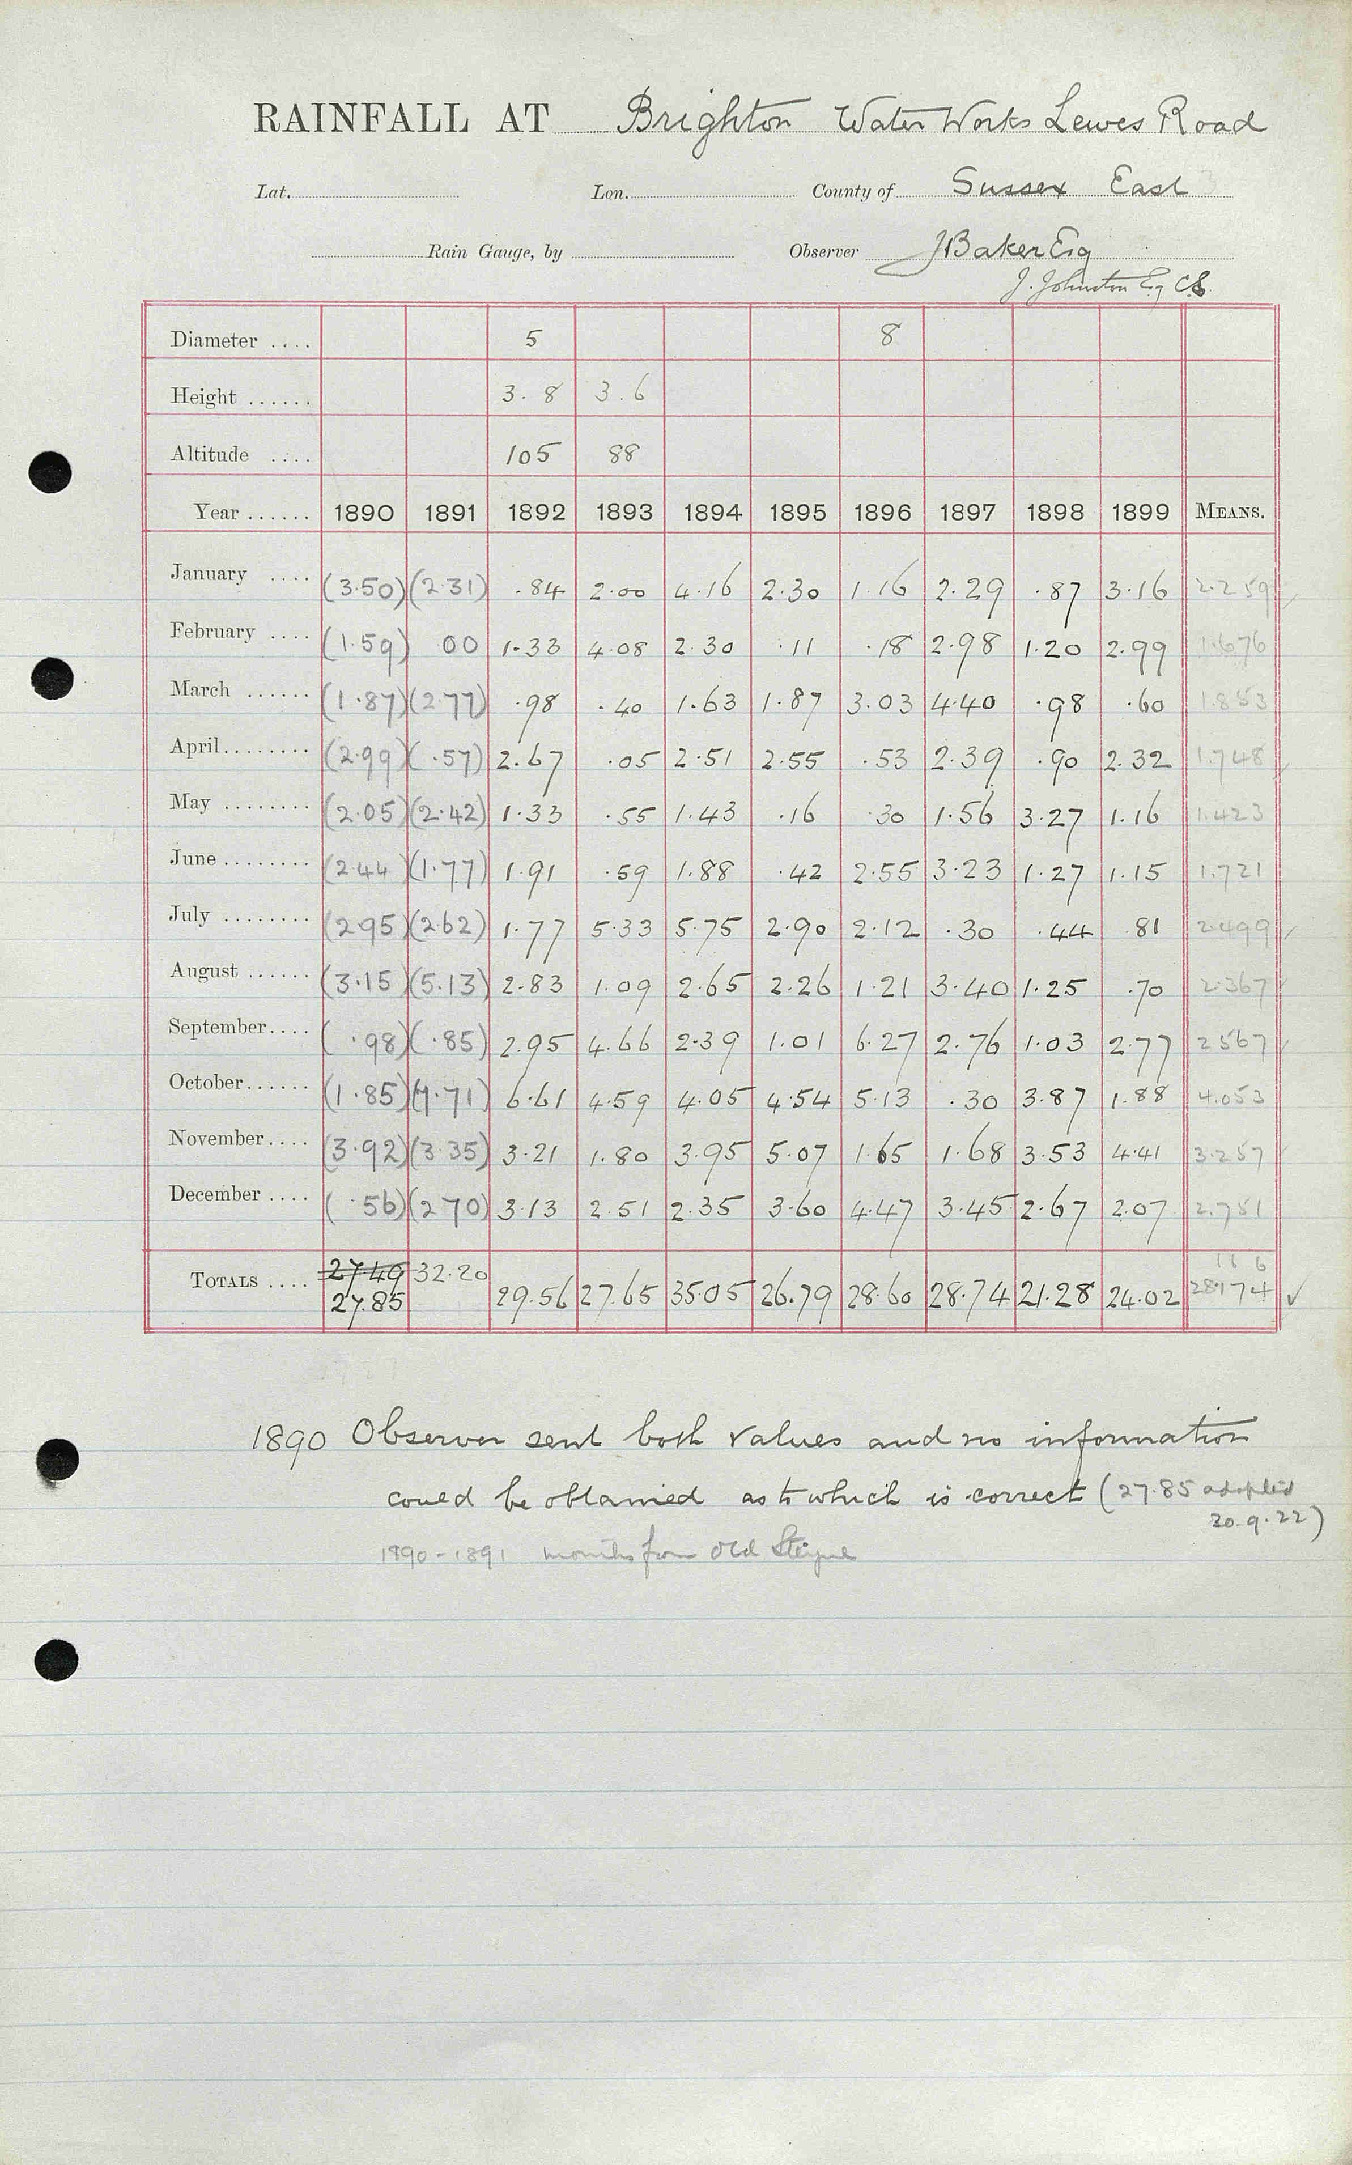 RAINFALL AT Brighton Water Works Lewes Road
Lat. Lon. County of Sussex East
Rain Gauge, by Observer J Baker Esq
J. Johnston Esq C.E.
Diameter .... 5 8
Height ...... 3.8 3.6
Altitude .... 105 88
Year ...... 1890 1891 1892 1893 1894 1895 1896 1897 1898 1899 MEANS.
January .... (3.50) (2.31) .84 2.00 4.16 2.30 1.16 2.29 .87 3.16 2.259
February .... (1.59) 00 1.33 4.08 2.30 .11 .18 2.98 1.20 2.99 1.676
March ...... (1.87) (2.77) .98 .40 1.63 1.87 3.03 4.40 .98 .60 1.853
April ........ (2.99) (.57) 2.67 .05 2.51 2.55 .53 2.39 .90 2.32 1.748
May ........ (2.05) (2.42) 1.33 .55 1.43 .16 .30 1.56 3.27 1.16 1.423
June ........ (2.44) (1.77) 1.91 .59 1.88 .42 2.55 3.23 1.27 1.15 1.721
July ........ (2.95) (2.62) 1.77 5.33 5.75 2.90 2.12 .30 .44 .81 2.499
August ...... (3.15) (5.13) 2.83 1.09 2.65 2.26 1.21 3.40 1.25 .70 2.367
September .... (.98) (.85) 2.95 4.66 2.39 1.01 6.27 2.76 1.03 2.77 2.567
October ...... (1.85) (7.71) 6.61 4.59 4.05 4.54 5.13 .30 3.87 1.88 4.053
November .... (3.92) (3.35) 3.21 1.80 3.95 5.07 1.65 1.68 3.53 4.41 3.257
December .... (.56) (2.70) 3.13 2.51 2.35 3.60 4.47 3.45 2.67 2.07 2.751
TOTALS .... 27.49 32.20
27.85 29.56 27.65 35.05 26.79 28.60 28.74 21.28 24.02 28.174
1890 Observer sent both values and no information
could be obtained as to which is correct (27.85 adopted
20.9.22)
1890-1891 months from Old Steyne